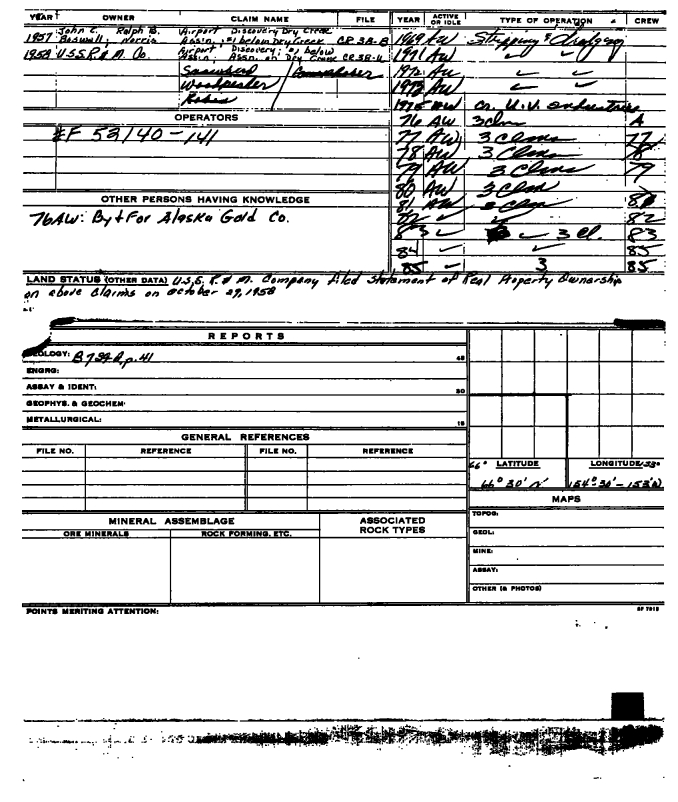 YEAR OWNER CLAIM NAME FILE YEAR ACTIVE OR IDLE TYPE OF OPERATION CREW
1957 John C. Boswell; Ralph B. Norris Airport Discovery Dry Creek Assn.; #1 below Dry Creek CR 38-8
1958 U.S.S.R. & M. Co. Airport Discovery; #1 below Assn.; Assn. on Dry Creek CR 38-11
Snowbird
Woodpecker
Robes
1969 AW Stripping & dredging
1971 AW ✓ ✓
1972 AW ✓ ✓
1973 AW ✓ ✓
1975 AW U.V. Industries
76 AW 3 clm A
77 AW 3 Clms 77
78 AW 3 Clms 78
79 AW 3 Clms 79
80 AW 3 Clms
81 AW 3 Clm 81
82 ✓ ✓ 82
83 ✓ ✓ 3 Cl. 83
84 ✓ ✓ 85
85 ✓ 3 85
OPERATORS
*F 53140-141
OTHER PERSONS HAVING KNOWLEDGE
76AW: By + For Alaska Gold Co.
LAND STATUS (OTHER DATA) U.S.S. R. & M. Company filed statement of Real Property Ownership
on above Claims on October 29, 1958
REPORTS
GEOLOGY: B739A, p.41 45
ENGRG:
ASSAY & IDENT: 30
GEOPHYS. & GEOCHEM.
METALLURGICAL: 15
GENERAL REFERENCES
FILE NO. REFERENCE FILE NO. REFERENCE
66° LATITUDE LONGITUDE 153°
66° 30' N 154° 30' - 153' W
MAPS
TOPOG:
GEOL:
MINE:
ASSAY:
OTHER (& PHOTOS)
MINERAL ASSEMBLAGE ASSOCIATED ROCK TYPES
ORE MINERALS ROCK FORMING, ETC.
POINTS MERITING ATTENTION: